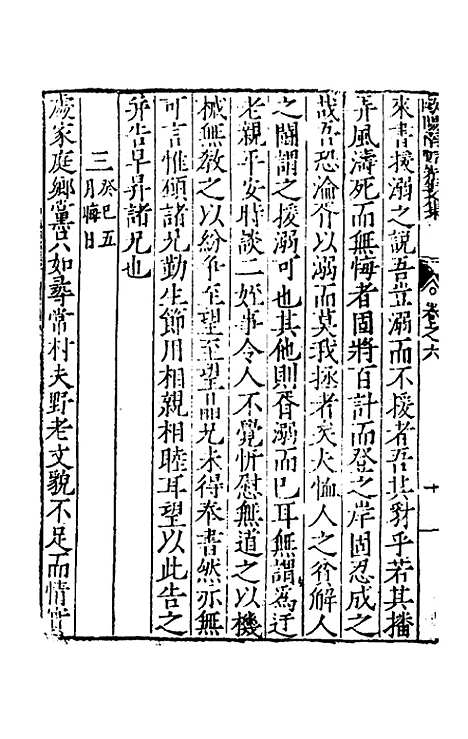 歐陽南野先生文集 卷之六 十一
來書援溺之說吾豈溺而不援者吾其豺乎若其播
弄風濤死而無悔者固將百計而登之岸固忍成之
哉吾恐淪胥以溺而莫我拯者矣大恤人之窘解人
之鬪謂之援溺可也其他則胥溺而已耳無謂為迂
老親平安時談二姪事令人不覺忻慰無道之以機
械無教之以紛爭至望至望品兄未得奉書然亦無
可言惟願諸兄勤生節用相親相睦耳望以此告之
并告早昇諸兄也
三癸巳五月晦日
處家庭鄉黨只如尋常村夫野老文貌不足而情